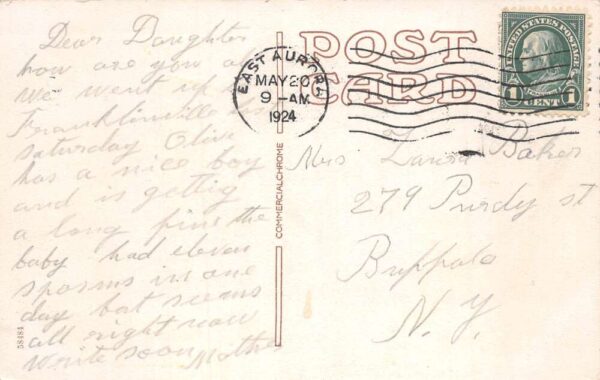 Dear Daughter
how are you all
we went up to
Franklinville
saturday Olive
has a nice boy
and is gettig
a long fine the
baby had eleven
spasms in one
day but seems
all right now
write soon Mother
58484
COMMERCIALCHROME
POST
CARD
EAST AURORA
MAY 20
9 - AM
1924
UNITED STATES POSTAGE
1 CENT 1
Mrs Baker
279 Purdy st
Buffalo
N.Y.